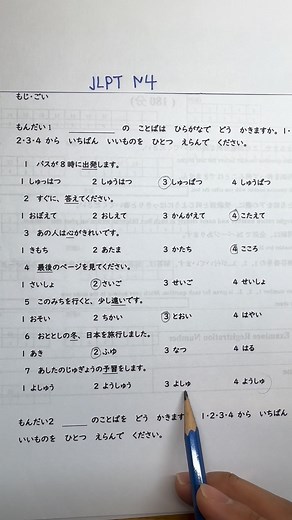 JLPT N4
もじ・ごい
もんだい1 ＿＿＿ の ことばは ひらがなで どう かきますか。1・
2・3・4から いちばん いいものを ひとつ えらんで ください。
1 バスが8時に出発します。
1 しゅっはつ 2 しゅうはつ ③しゅっぱつ 4 しゅうぱつ
2 すぐに、答えてください。
1 おぼえて 2 おしえて 3 かんがえて ④こたえて
3 あの人は心がきれいです。
1 きもち 2 あたま 3 かたち ④こころ
4 最後のページを見てください。
1 さいしょ ②さいご 3 せいご 4 せいしょ
5 このみちを行くと、少し遠いです。
1 おそい 2 ちかい ③とおい 4 はやい
6 おととしの冬、日本を旅行しました。
1 あき ②ふゆ 3 なつ 4 はる
7 あしたのじゅぎょうの予習をします。
1 よしゅう 2 ようしゅう 3 よしゅ 4 ようしゅ
もんだい2 ＿＿＿ のことばを どう かきます 1・2・3・4 から いちばん
いいものを ひとつ えらんで ください。